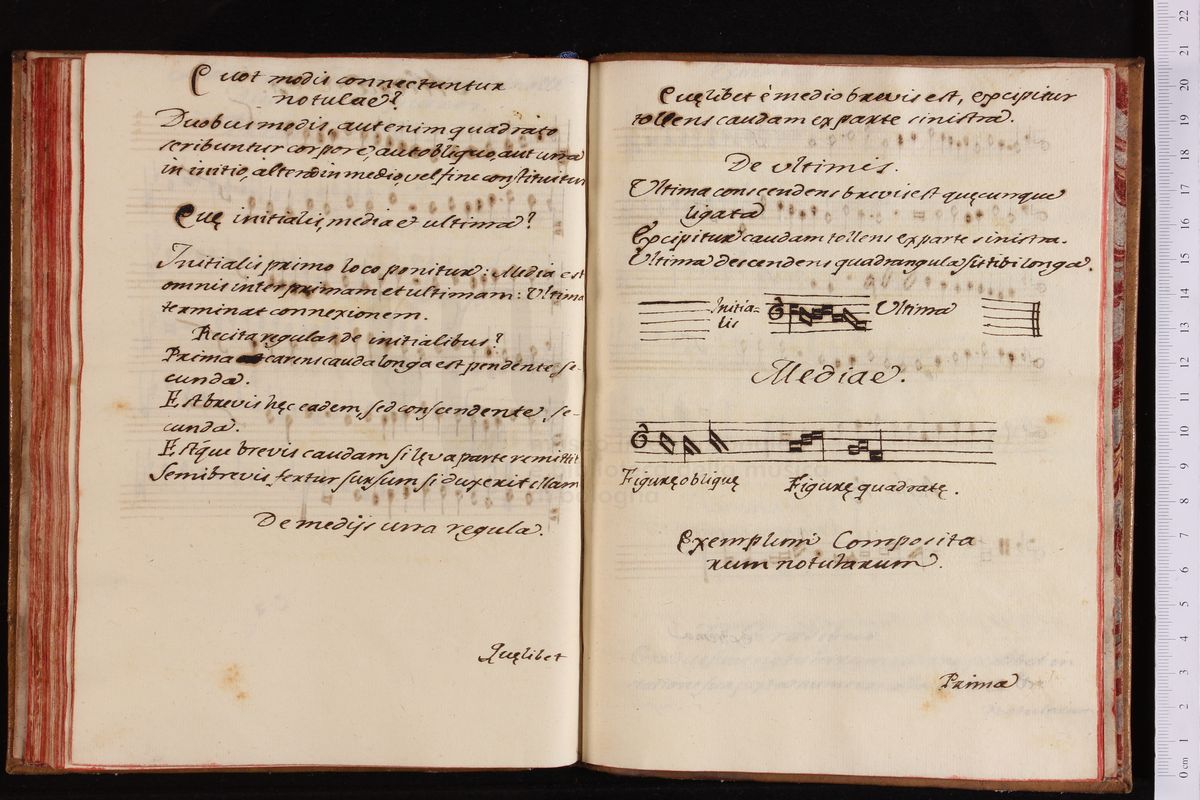 Quot modis connectuntur
notulae?
Duobus modis, aut enim quadrato
scribuntur corpore, aut obliquo, aut una
in initio, altera in medio, vel fine constituitur
Quę initialis, media et ultima?
Initialis primo loco ponitur: Media est
omnis inter primam et ultimam: Ultima
terminat connexionem.
Recita regulas de initialibus?
Prima carens cauda longa est pendente se-
cunda.
Est brevis hęc eadem, sed conscendente, se-
cunda.
Estque brevis caudam si lęva parte remittit
Semibrevis fertur sursum si duxerit illam
De medijs una regula.
Quęlibet
Quęlibet è medio brevis est, excipitur
tollens caudam ex parte sinistra.
De ultimis.
Ultima conscendens brevis est quęcunque
ligata
Excipitur caudam tollens ex parte sinistra.
Ultima descendens quadrangula sit tibi longa.
Initia-
lis
Ultima
Mediae.
Figurę obliquę
Figurę quadratę.
Exemplum Composita
rum notularum.
Prima